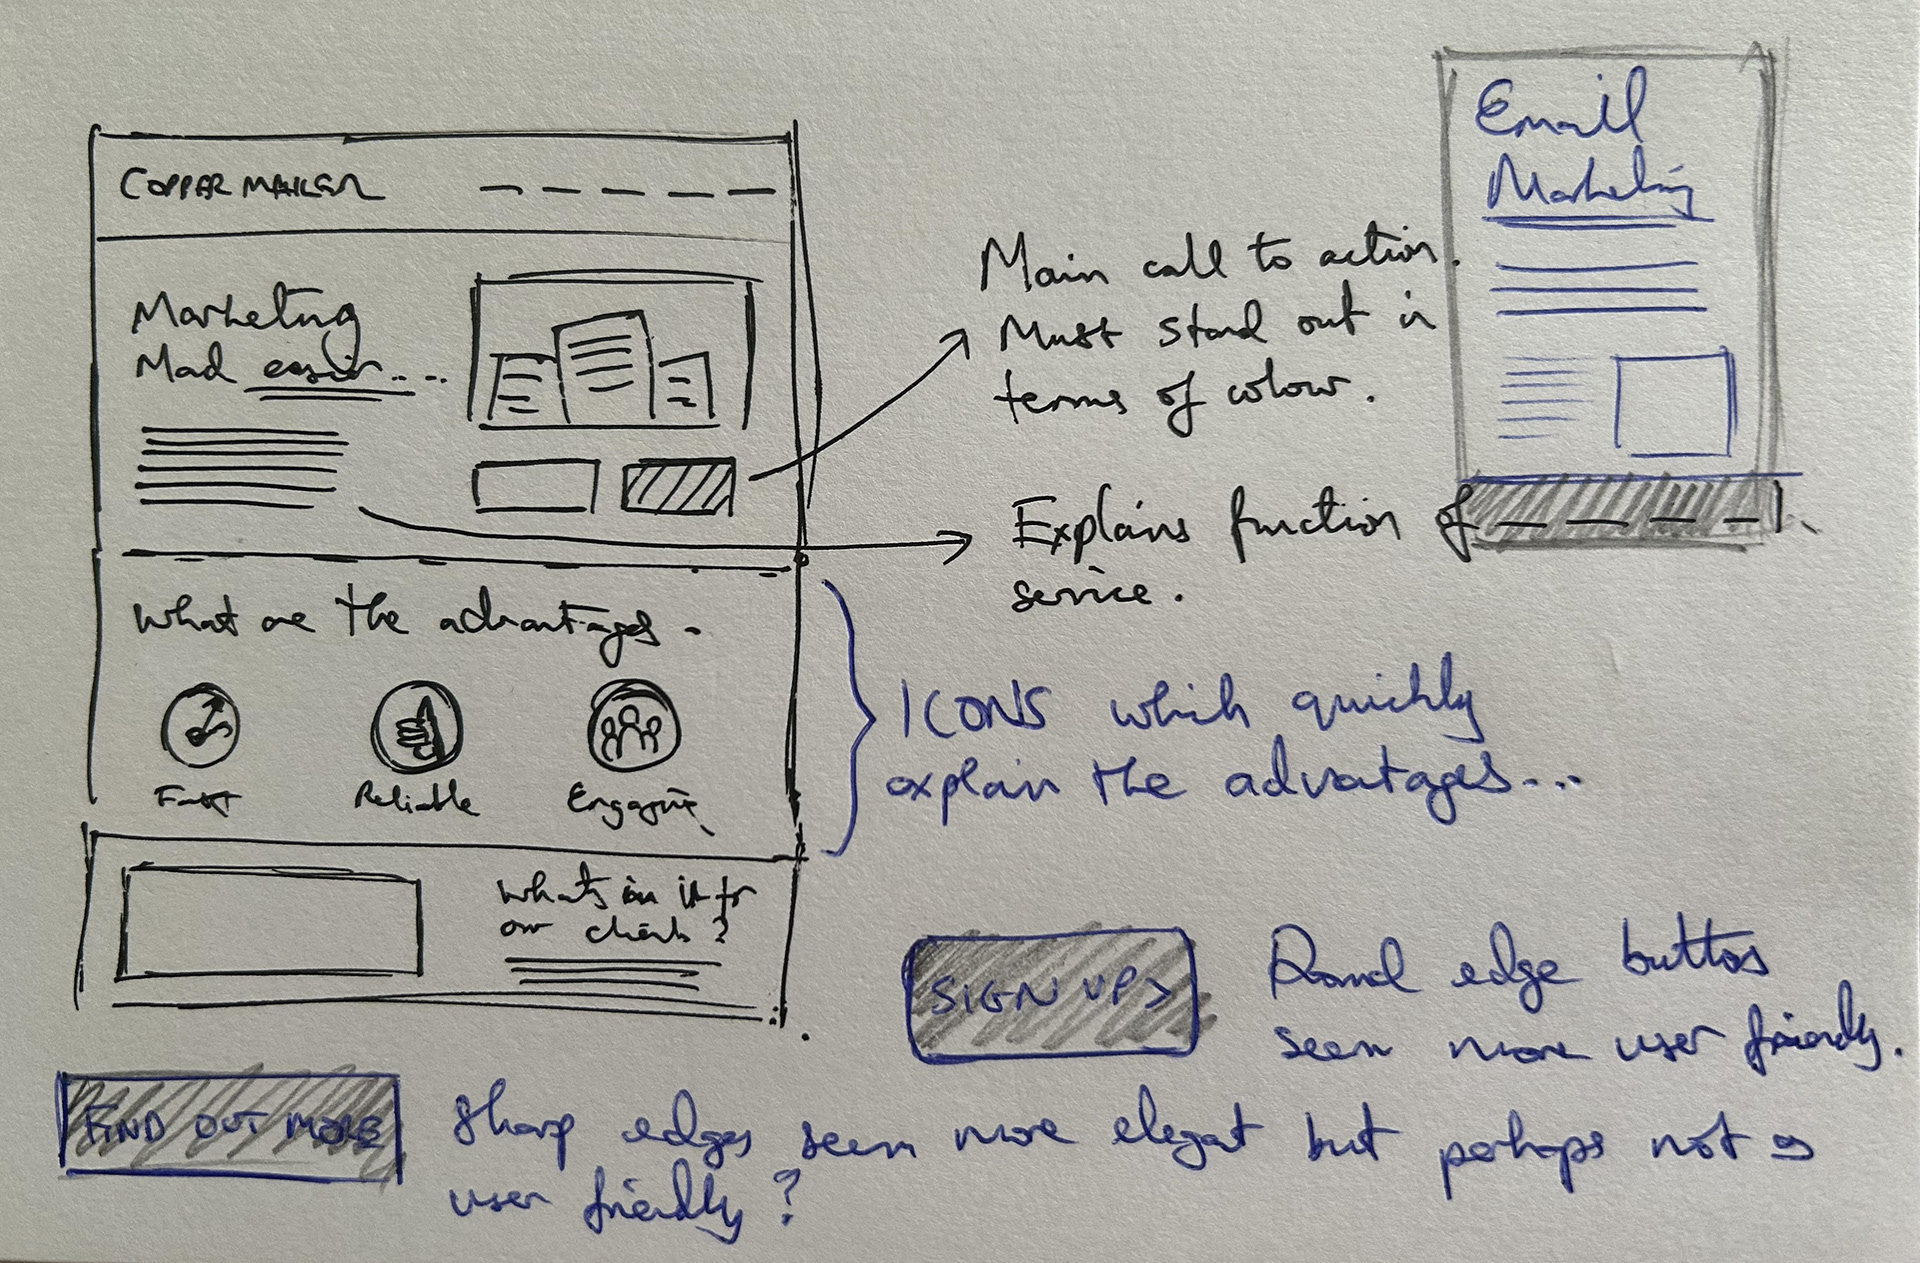 COPPER MAILER
Marketing
Mad easier....
What are the advantages.
Fast
Reliable
Engaging
What's in it for
our clients?
Main call to action.
Must stand out in
terms of colour.
Explains function of
service.
Email
Marketing
ICONS which quickly
explain the advantages...
SIGN UP >
Round edge buttons
seem more user friendly.
FIND OUT MORE
Sharp edges seem more elegant but perhaps not as
user friendly?